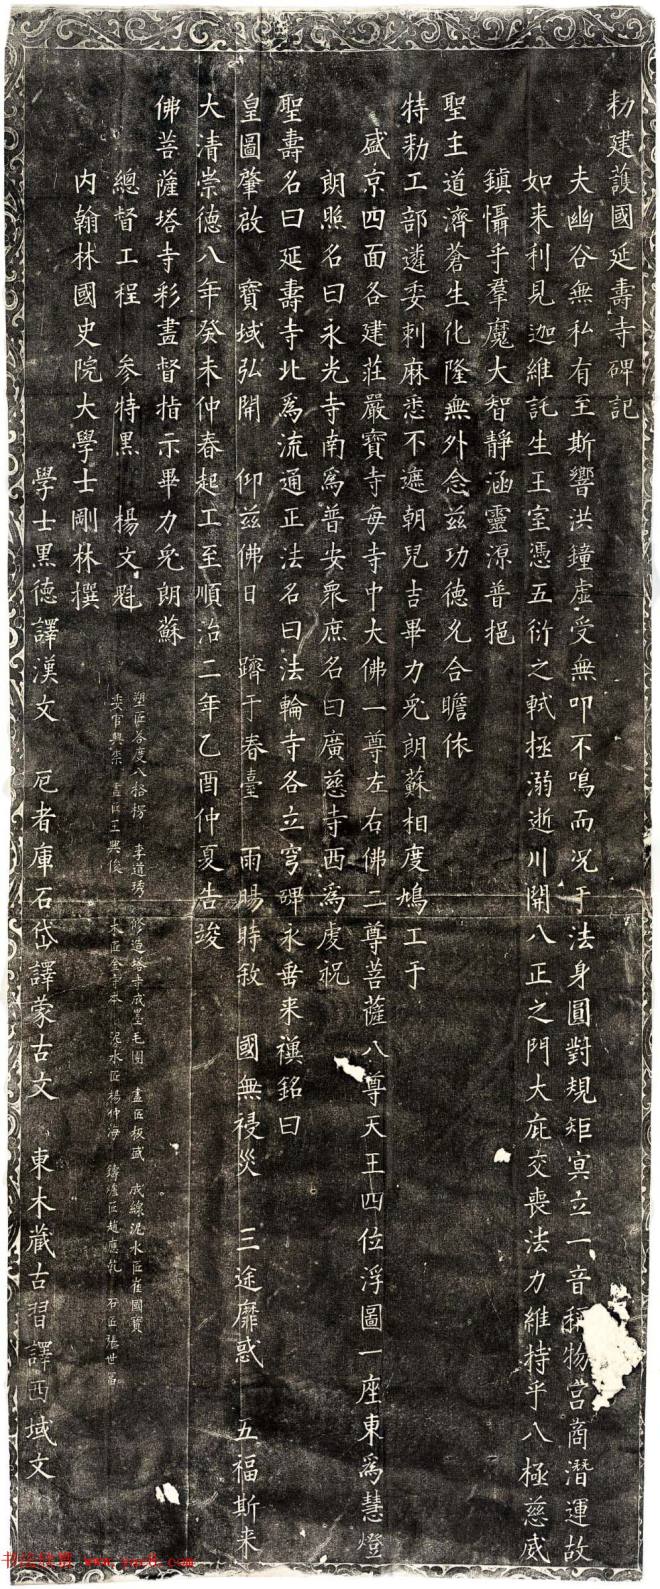 勑建護國延壽寺碑記
夫幽谷無私有至斯響洪鐘虛受無叩不鳴而况于法身圓對規矩冥立一音稱物宫商潛運故
如来利見迦維託生王室憑五衍之軾拯溺逝川開八正之門大庇交喪法力維持乎八極慈威
鎮懾乎羣魔大智靜涵靈源普挹
聖主道濟蒼生化隆無外念兹功德允合瞻依
特勑工部遴委刺麻悉不遮朝兒吉畢力兎朗蘇相度鳩工于
盛京四面各建莊嚴寶寺每寺中大佛一尊左右佛二尊菩薩八尊天王四位浮圖一座東為慧燈
朗照名曰永光寺南為普安衆庶名曰廣慈寺西為虔祝
聖壽名曰延壽寺北為流通正法名曰法輪寺各立穹碑永垂来禩銘曰
皇圖肇啟 寶域弘開 仰兹佛日 躋于春臺 雨暘時敘 國無祲災 三途靡惑 五福斯来
大清崇德八年癸未仲春起工至順治二年乙酉仲夏告竣
佛菩薩塔寺彩畫督指示畢力兎朗蘇
總督工程 参特黑 楊文魁
塑匠 李道琇 修造塔寺 毛團 畫匠 泥水匠崔國寶
委官興柰 畫匠王興俊 木匠 泥水匠楊仲海 石匠張世昌
内翰林國史院大學士剛林撰
學士黑德譯漢文 厄者庫石岱譯蒙古文 東木藏古習譯西域文
www.yac8.com